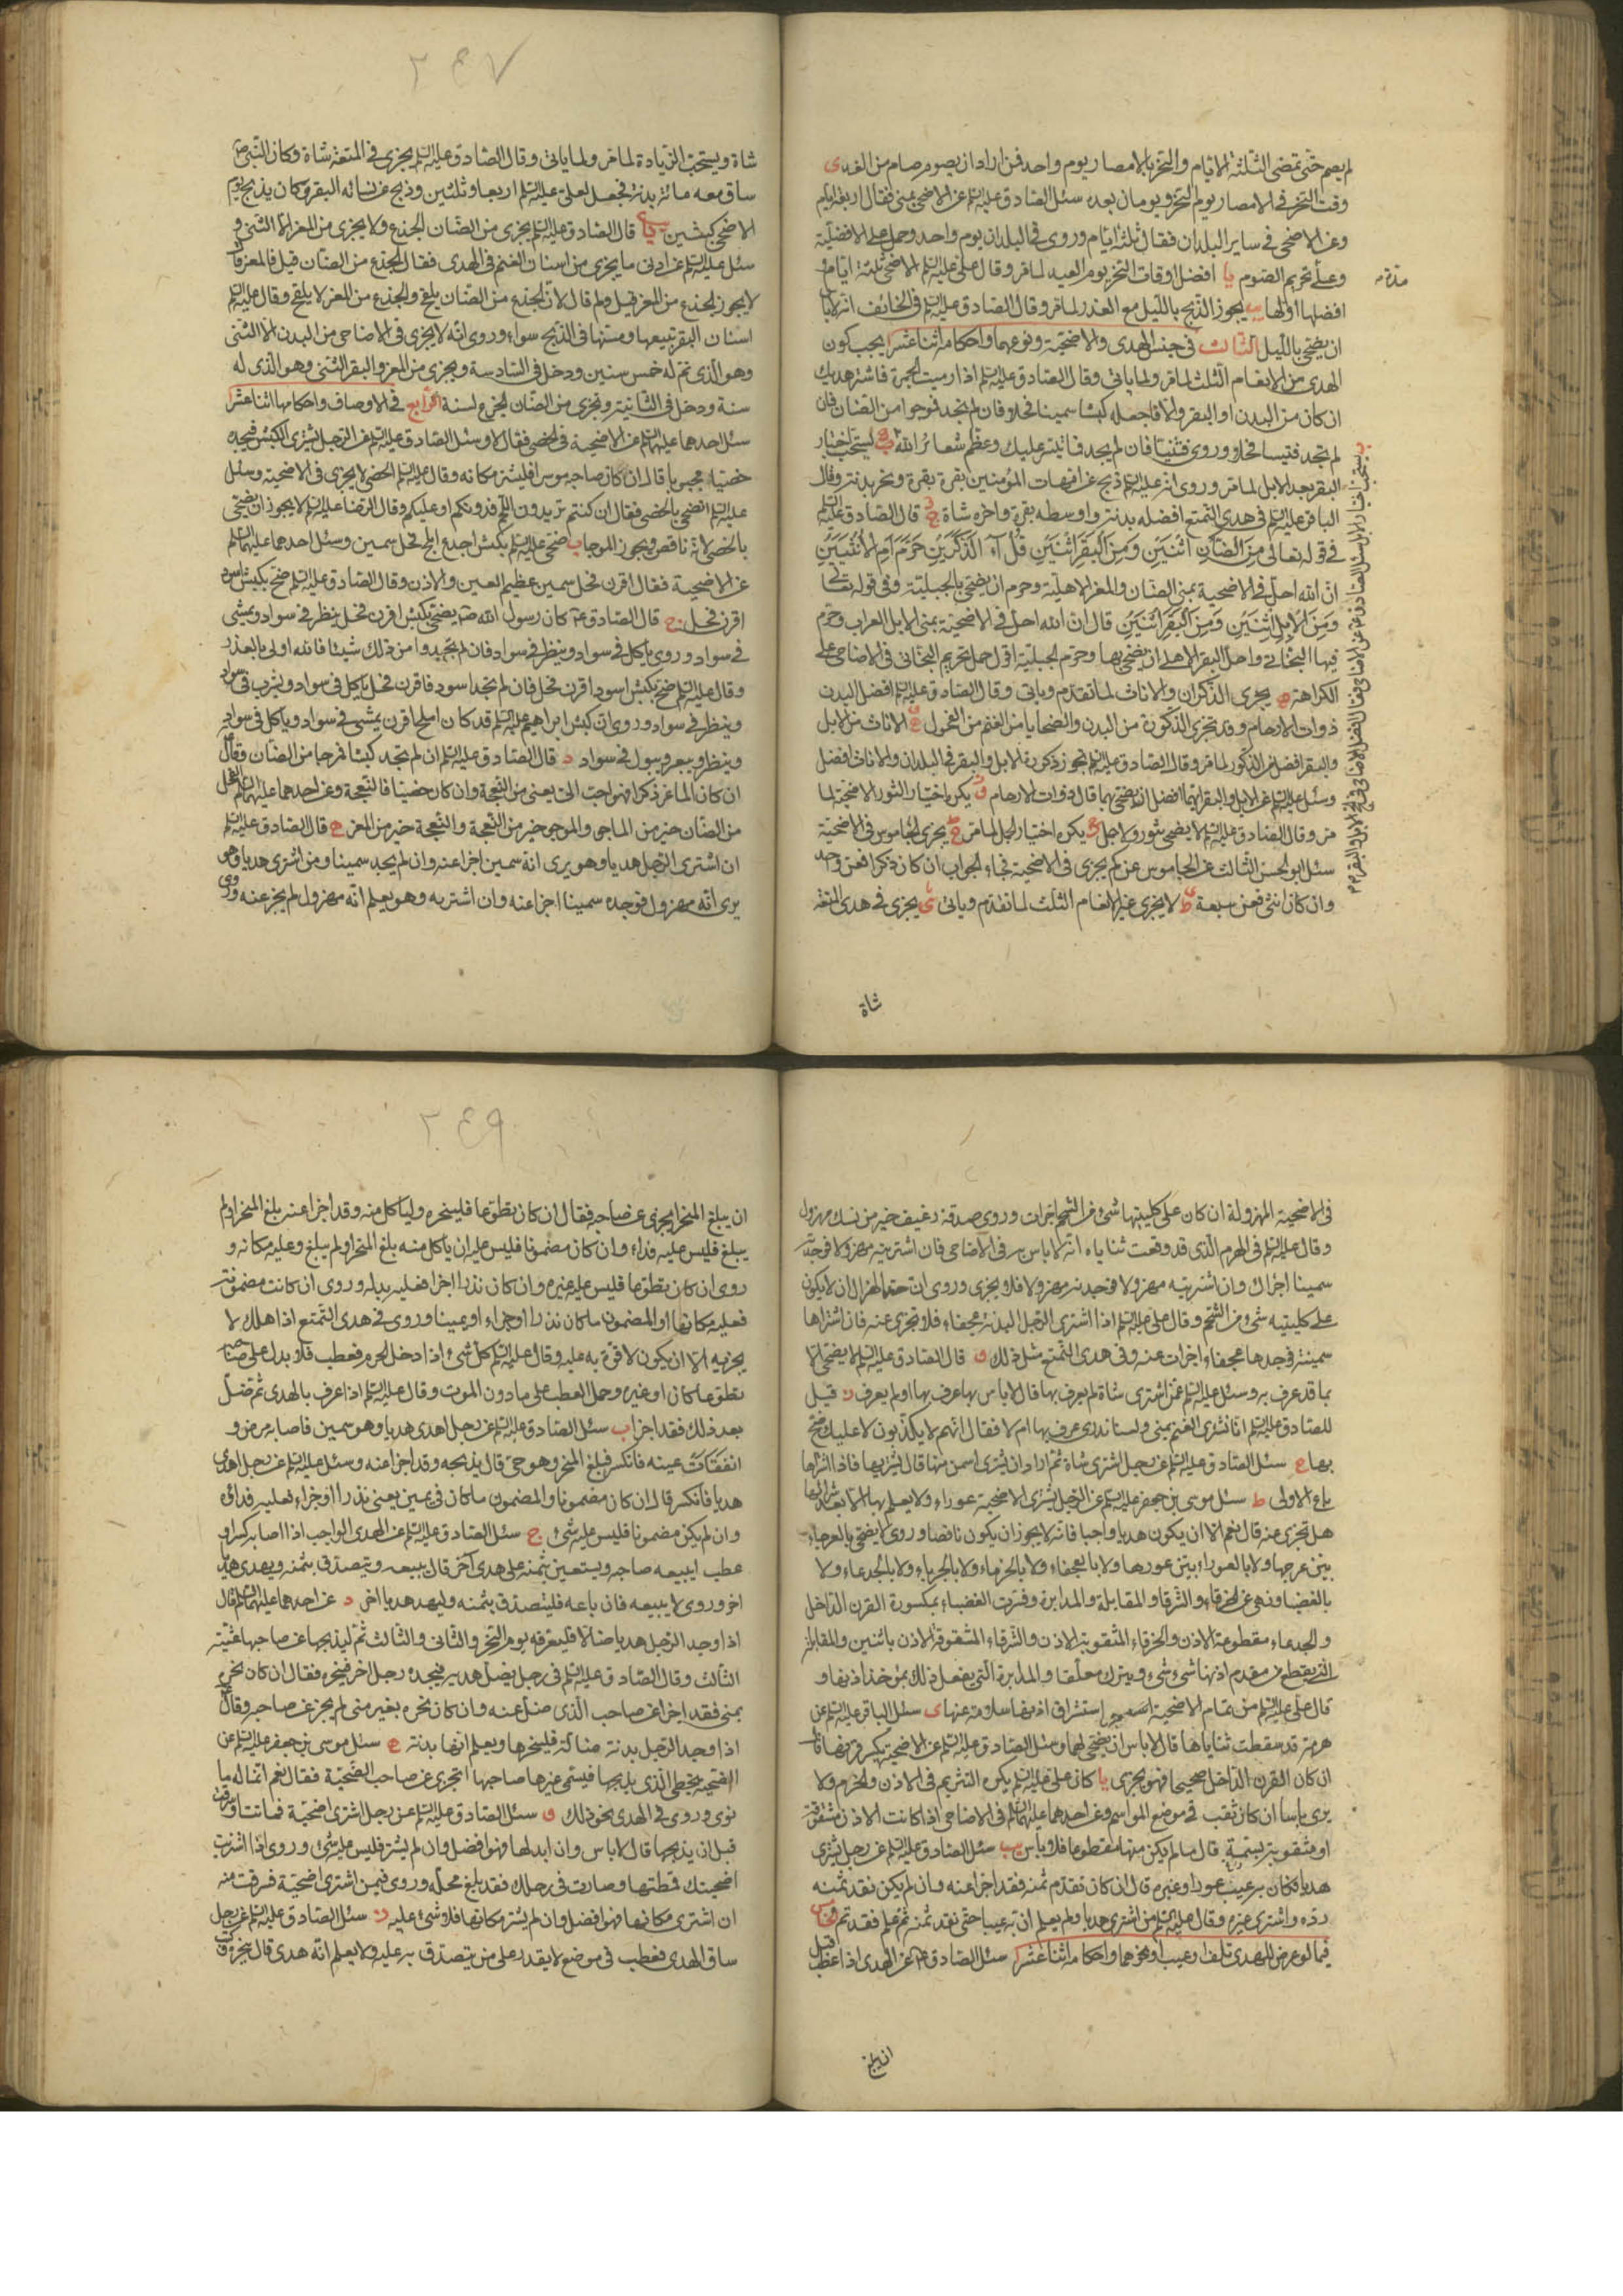 لم يصم حتى تمضى الثلثة الايام والنحر بالامصار يوم واحد فمن اراد ان يصوم صام من الغد ى
وقت النحر فى الامصار يوم النحر ويومان بعده سئل الصادق عليه السلم عن الاضحى بمنى فقال اربعة ايام
وعن الاضحى فى ساير البلدان فقال ثلثة ايام وروى فى البلدان يوم واحد وحمل على الافضلية
وعلى تحريم الصوم يا افضل اوقات النحر يوم العيد لما مر وقال على عليه السلم الاضحى ثلثة ايام و
افضلها اولها يب يجوز الذبح بالليل مع العذر لما مر وقال الصادق عليه السلم فى الخائف انه لا باس
ان يضحى بالليل الثالث فى جنس الهدى والاضحية ونوعهما واحكامه اثنا عشر ا يجب كون
الهدى من الانعام الثلث لما مر ولما ياتى وقال الصادق عليه السلم اذا رميت الجمرة فاشتر هديك
ان كان من البدن او البقر والا فاجعله كبشا سمينا فحلا فان لم تجد فموجوا من الضان فان
لم تجد فتيسا فحلا وروى فثنيا فان لم يجد فما تيسر عليك وعظم شعائر الله ب يستحب اختيار
البقر بعد الابل لما مر وروى انه عليه السلم ذبح عن امهات المؤمنين بقرة بقرة ونحر بدنة وقال
الباقر عليه السلم فى هدى التمتع افضله بدنة واوسطه بقرة واخره شاة ج قال الصادق عليه السلم
فى قوله تعالى مِنَ الضَّأنِ اثْنَيْنِ وَمِنَ الْبَقَرِ اثْنَيْنِ قُلْ آٰ الذَّكَرَيْنِ حَرَّمَ اَمِ الْاُنْثَيَيْنِ
ان الله احل فى الاضحية بمنى الضان والمعز الاهلية وحرم ان يضحى بالجبلية وفى قوله تعالى
وَمِنَ الْاِبِلِ اثْنَيْنِ وَمِنَ الْبَقَرِ اثْنَيْنِ قال ان الله احل فى الاضحية بمنى الابل العراب وحرم
فيها البخاتى واحل البقر الاهلى ان يضحى بها وحرم الجبلية اقول حمل تحريم البخاتى فى الاضاحى على
الكراهة يجزى الذكران والاناث لما تقدم وياتى وقال الصادق عليه السلم افضل البدن
ذوات الارحام وقد تجزى الذكورة من البدن والضحايا من الغنم من الفحول الاناث من الابل
والبقر افضل من الذكور لما مر وقال الصادق عليه السلم تجوز ذكورة الابل والبقر فى البلدان والاناث افضل
وسئل عليه السلم عن الابل والبقر ايهما افضل ان يضحى بها قال ذوات الارحام و يكره اختيار الثور للاضحية لما
مر وقال الصادق عليه السلم لا يضحى بثور ولا جمل يكره اختيار الجمل لما مر ح يجزى الجاموس فى الاضحية
سئل ابو الحسن الثالث عن الجاموس عن كم يجزى فى الاضحية فجاء الجواب ان كان ذكرا فعن واحد
وان كان انثى فعن سبعة ط لا يجزى غير الانعام الثلث لما تقدم وياتى ى يجزى فى هدى المتعة
شاة
٢٤٧
شاة ويستحب الزيادة لما مر ولما ياتى وقال الصادق عليه السلم يجزى فى المتعة شاة وكان النبى ص
ساق معه مائة بدنة فجعل لعلى عليه السلم اربعا وثلثين وذبح عن نسائه البقر وكان يذبح يوم
الاضحى كبشين يا قال الصادق عليه السلم يجزى من الضان الجذع ولا يجزى من المعز الا الثنى و
سئل عليه السلم عن ادنى ما يجزى من اسنان الغنم فى الهدى فقال الجذع من الضان قيل فالمعز قال
لا يجوز الجذع من المعز قيل ولم قال لان الجذع من الضان يلقح والجذع من المعز لا يلقح وقال عليه السلم
اسنان البقر تبيعها ومسنها فى الذبح سواء وروى انه لا يجزى فى الاضاحى من البدن الا الثنى
وهو الذى تم له خمس سنين ودخل فى السادسة ويجزى من المعز والبقر الثنى وهو الذى له
سنة ودخل فى الثانية ويجزى من الضان الجذع لسنة الرابع فى الاوصاف واحكامها اثنا عشر ا
سئل احدهما عليهما السلم عن الاضحية فى الخصى فقال لا وسئل الصادق عليه السلم عن الرجل يشترى الكبش فيجده
خصيا مجبوبا قال ان كان صاحبه موسرا فليشتر مكانه وقال عليه السلم الخصى لا يجزى فى الاضحية وسئل
عليه السلم انضحى بالخصى فقال ان كنتم تريدون اللحم فدونكم او عليكم وقال الرضا عليه السلم لا يجوز ان يضحى
بالخصى لانه ناقص ويجوز الموجا ب ضحى عليه السلم بكبش اجذع املح فحل سمين وسئل احدهما عليهما السلم
عن الاضحية فقال اقرن فحل سمين عظيم العين والاذن وقال الصادق عليه السلم ضح بكبش اسود
اقرن فحل ج قال الصادق ع كان رسول الله ص يضحى بكبش اقرن فحل ينظر فى سواد ويمشى
فى سواد وروى ياكل فى سواد وينظر فى سواد فان لم تجدوا من ذلك شيئا فالله اولى بالعذر
وقال عليه السلم ضح بكبش اسود اقرن فحل فان لم تجد اسود فاقرن فحل ياكل فى سواد ويشرب فى سواد
وينظر فى سواد وروى ان كبش ابراهيم عليه السلم قد كان املح اقرن يمشى فى سواد وياكل فى سواد
وينظر ويبعر ويبول فى سواد د قال الصادق عليه السلم ان لم تجد كبشا فموجا من الضان وقال
ان كان الماعز ذكرا فهو احب الى يعنى من النعجة وان كان خصيا فالنعجة وعن احدهما عليهما السلم الفحل
من الضان خير من الماجى والموجى خير من النعجة والنعجة خير من المعز ه قال الصادق عليه السلم
ان اشترى الرجل هديا وهو يرى انه سمين اجزا عنه وان لم يجد سمينا ومن اشترى هديا وهو
يرى انه مهزول فوجده سمينا اجزا عنه وان اشتريه وهو يعلم انه مهزول لم يجز عنه وروى
فى الاضحية المهزولة ان كان على كليتيها شىء من الشحم اجزات وروى صدقة رغيف خير من نسك مهزول
وقال عليه السلم فى الهرم الذى قد وقعت ثناياه انه لا باس به فى الاضاحى فان اشتريته مهزولا فوجدته
سمينا اجزاك وان اشتريته مهزولا فوجدته مهزولا فلا يجزى وروى ان حد الهزال ان لا يكون
على كليتيه شىء من الشحم وقال على عليه السلم اذا اشترى الرجل البدنة عجفاء فلا تجزى عنه فان اشتراها
سمينة فوجدها عجفاء اجزات عنه وفى هدى التمتع مثل ذلك و قال الصادق عليه السلم لا يضحى الا
بما قد عرف به وسئل عليه السلم عمن اشترى شاة لم يعرف بها قال لا باس بها عرف بها او لم يعرف ز قيل
للصادق عليه السلم انا نشترى الغنم بمنى ولسنا ندرى عرف بها ام لا فقال انهم لا يكذبون لا عليك ضح
بها ح سئل الصادق عليه السلم عن رجل اشترى شاة ثم اراد ان يشترى اسمن منها قال يشتريها فاذا اشتراها
باع الاولى ط سئل موسى بن جعفر عليه السلم عن الرجل يشترى الاضحية عوراء ولا يعلم بها الا بعد شرائها
هل تجزى عنه قال نعم الا ان يكون هديا واجبا فانه لا يجوز ان يكون ناقصا وروى لا يضحى بالعرجاء
بين عرجها ولا بالعوراء بين عورها ولا بالعجفاء ولا بالخرماء ولا بالجرباء ولا بالجدعاء ولا
بالعضباء ونهى عن الخرقاء والشرقاء والمقابلة والمدابرة وفسرت العضباء بمكسورة القرن الداخل
والجدعاء مقطوعة الاذن والخرقاء المثقوبة الاذن والشرقاء المشقوقة الاذن باثنين والمقابلة
التى يقطع من مقدم اذنها شىء ويترك معلقا والمدابرة التى يفعل ذلك بموخذ اذنها و
قال على عليه السلم من تمام الاضحية استشراق اذنها سلامة عنها ى سئل الباقر عليه السلم عن
هرمة قد سقطت ثناياها قال لا باس ان يضحى بها وسئل الصادق عليه السلم عن الاضحية يكسر قرنها قال
ان كان القرن الداخل صحيحا فهو يجزى يا كان على عليه السلم يكره التشريم فى الاذن والخرم ولا
يرى باسا ان كان ثقب فى موضع المواسم وعن احدهما عليهما السلم فى الاضاحى اذا كانت الاذن مشقوقة
او مثقوبة بسمة قال ما لم يكن منها مقطوعا فلا باس يب سئل الصادق عليه السلم عن رجل يشترى
هديا فكان به عيب عور او غيره قال ان كان نقد ثمنه فقد اجزا عنه وان لم يكن نقد ثمنه
رده واشترى غيره وقال عليه السلم من اشترى هديا ولم يعلم ان به عيبا حتى نقد ثمنه ثم علم فقد تم الخامس
فيما لو عرض للهدى تلف او عيب او نحوهما واحكامه اثنا عشر ا سئل الصادق ع عن الهدى اذا عطب قبل
ان يبلغ
٢٤٩
ان يبلغ المنحر ايجزى عن صاحبه فقال ان كان تطوعا فلينحره ولياكل منه وقد اجزا عنه بلغ المنحر او لم
يبلغ فليس عليه فداء وان كان مضمونا فليس عليه ان ياكل منه بلغ المنحر او لم يبلغ وعليه مكانه و
روى ان كان تطوعا فليس عليه غيره وان كان نذرا او جزاء فعليه بدله وروى ان كانت مضمونة
فعليه مكانها والمضمون ما كان نذرا او جزاء او يمينا وروى فى هدى التمتع اذا هلك لا
يجزيه الا ان يكون لا قوة به عليه وقال عليه السلم كل شىء اذا دخل الحرم فعطب فلا بدل على صاحبه
تطوعا كان او غيره وحمل العطب على ما دون الموت وقال عليه السلم اذا عرف بالهدى ثم ضل
بعد ذلك فقد اجزا ب سئل الصادق عليه السلم عن رجل اهدى هديا وهو سمين فاصابه مرض و
انفقات عينه فانكسر فبلغ المنحر وهو حى قال يذبحه وقد اجزا عنه وسئل عليه السلم عن رجل اهدى
هديا فانكسر قال ان كان مضمونا والمضمون ما كان فى يمين يعنى نذرا او جزاء فعليه فداؤه
وان لم يكن مضمونا فليس عليه شىء ج سئل الصادق عليه السلم عن الهدى الواجب اذا اصابه كسر او
عطب ايبيعه صاحبه ويستعين بثمنه على هدى آخر قال يبيعه ويتصدق بثمنه ويهدى هديا
اخر وروى لا يبيعه فان باعه فليتصدق بثمنه وليهد هديا اخر د عن احدهما عليهما السلم قال
اذا وجد الرجل هديا ضالا فليعرفه يوم النحر والثانى والثالث ثم ليذبحها عن صاحبها عشية
الثالث وقال الصادق عليه السلم فى رجل يضل هديه فيجده رجل اخر فينحره فقال ان كان نحره
بمنى فقد اجزا عن صاحبه الذى ضل عنه وان كان نحره بغير منى لم يجز عن صاحبه وقال
اذا وجد الرجل بدنة ضالة فلينحرها ويعلم انها بدنة ه سئل موسى بن جعفر عليه السلم عن
الضحية يخطى الذى يذبحها فيسمى غير صاحبها اتجزى عن صاحب الضحية فقال نعم انما له ما
نوى وروى فى الهدى نحو ذلك و سئل الصادق عليه السلم عن رجل اشترى اضحية فماتت او سرقت
قبل ان يذبحها قال لا باس وان ابدلها فهو افضل وان لم يشتر فليس عليه شىء وروى اذا اشتريت
اضحيتك وقمطتها وصارت فى رحلك فقد بلغ محله وروى فيمن اشترى اضحية فسرقت منه
ان اشترى مكانها فهو افضل وان لم يشتر مكانها فلا شىء عليه ز سئل الصادق عليه السلم عن رجل
ساق الهدى فعطب فى موضع لا يقدر على من يتصدق به عليه ولا يعلم انه هدى قال ينحره